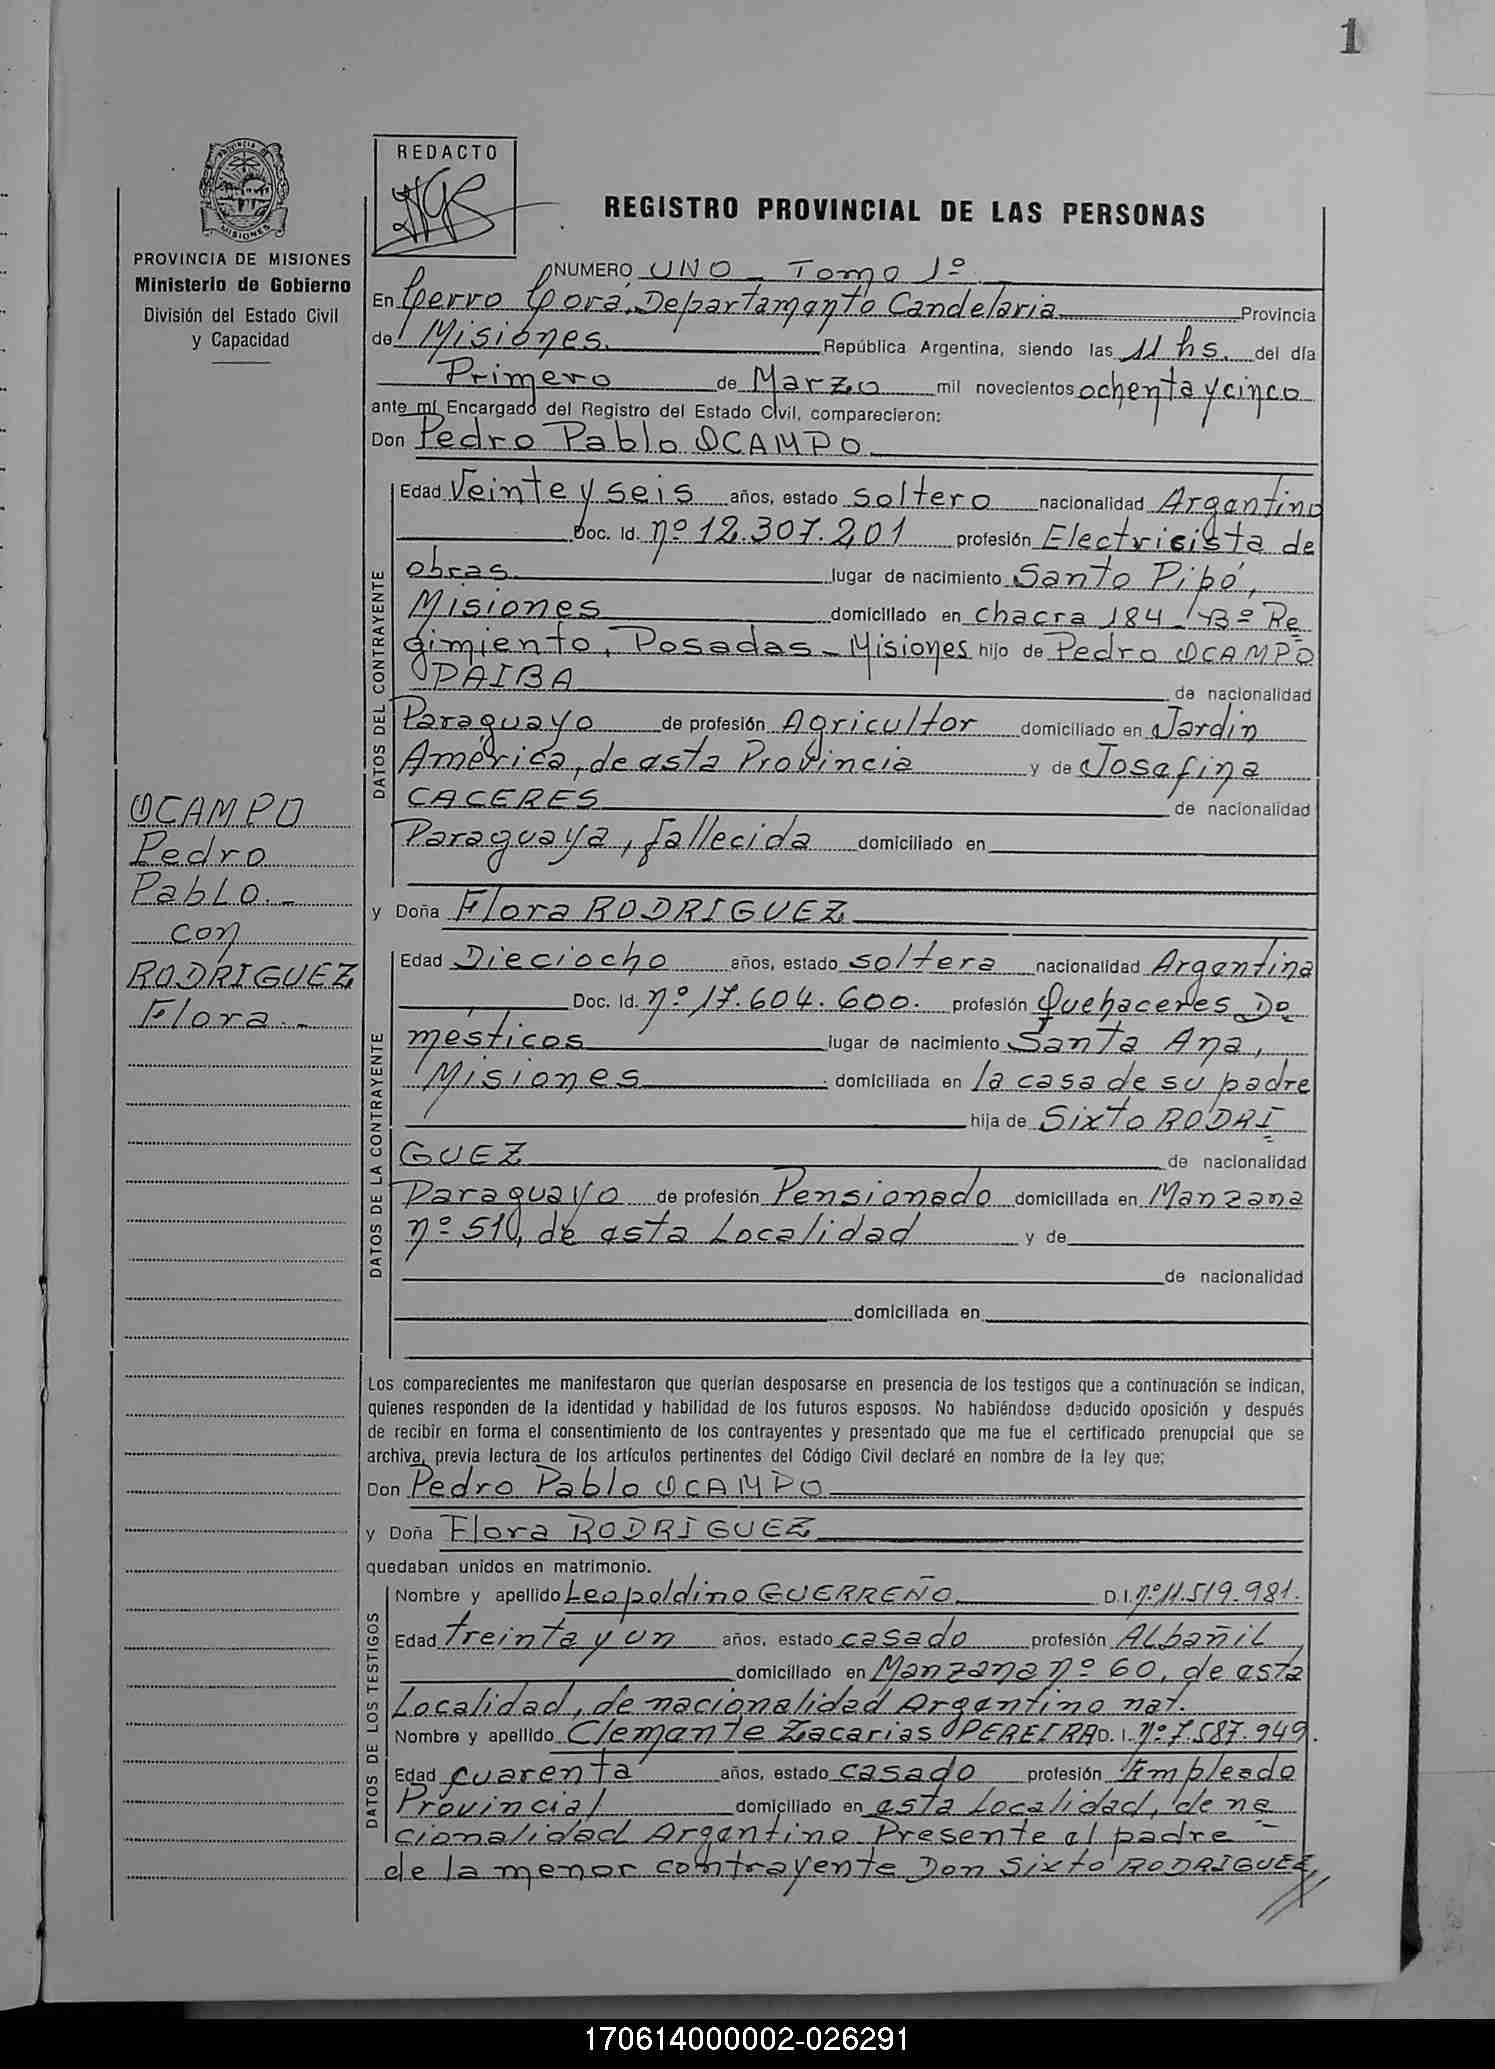 1
PROVINCIA DE
MISIONES
PROVINCIA DE MISIONES
Ministerio de Gobierno
División del Estado Civil
y Capacidad
OCAMPO
Pedro
Pablo.-
con
RODRIGUEZ
Flora.-
REDACTO
REGISTRO PROVINCIAL DE LAS PERSONAS
NUMERO UNO - Tomo 1º
En Cerro Corá, Departamento Candelaria Provincia
de Misiones. República Argentina, siendo las 11 hs. del día
Primero de Marzo mil novecientos ochenta y cinco
ante mí Encargado del Registro del Estado Civil, comparecieron:
Don Pedro Pablo OCAMPO
DATOS DEL CONTRAYENTE
Edad Veinte y seis años, estado soltero nacionalidad Argentino
Doc. Id. nº 12.307.201 profesión Electricista de
obras. lugar de nacimiento Santo Pipó,
Misiones domiciliado en chacra 184 - Bº Re
gimiento, Posadas - Misiones hijo de Pedro OCAMPO
PAIBA de nacionalidad
Paraguayo de profesión Agricultor domiciliado en Jardin
América, de esta Provincia y de Josefina
CACERES de nacionalidad
Paraguaya, fallecida domiciliado en
y Doña Flora RODRIGUEZ
DATOS DE LA CONTRAYENTE
Edad Dieciocho años, estado soltera nacionalidad Argentina
Doc. Id. nº 17.604.600. profesión Quehaceres Do
mesticos lugar de nacimiento Santa Ana,
Misiones domiciliada en la casa de su padre
hija de Sixto RODRI
GUEZ de nacionalidad
Paraguayo de profesión Pensionado domiciliada en Manzana
nº 51, de esta Localidad y de
de nacionalidad
domiciliada en
Los comparecientes me manifestaron que querían desposarse en presencia de los testigos que a continuación se indican,
quienes responden de la identidad y habilidad de los futuros esposos. No habiéndose deducido oposición y después
de recibir en forma el consentimiento de los contrayentes y presentado que me fue el certificado prenupcial que se
archiva, previa lectura de los artículos pertinentes del Código Civil declaré en nombre de la ley que;
Don Pedro Pablo OCAMPO
y Doña Flora RODRIGUEZ
quedaban unidos en matrimonio.
DATOS DE LOS TESTIGOS
Nombre y apellido Leopoldino GUERREÑO D.I. nº 11.519.981.
Edad treinta y un años, estado casado profesión Albañil
domiciliado en Manzana nº 60, de esta
Localidad, de nacionalidad Argentino nat.
Nombre y apellido Clemente Zacarias PEREIRA D. I. nº 7.587.949.
Edad cuarenta años, estado casado profesión Empleado
Provincial domiciliado en esta Localidad, de na
cionalidad Argentino. Presente el padre
de la menor contrayente Don Sixto RODRIGUEZ,
170614000002-026291